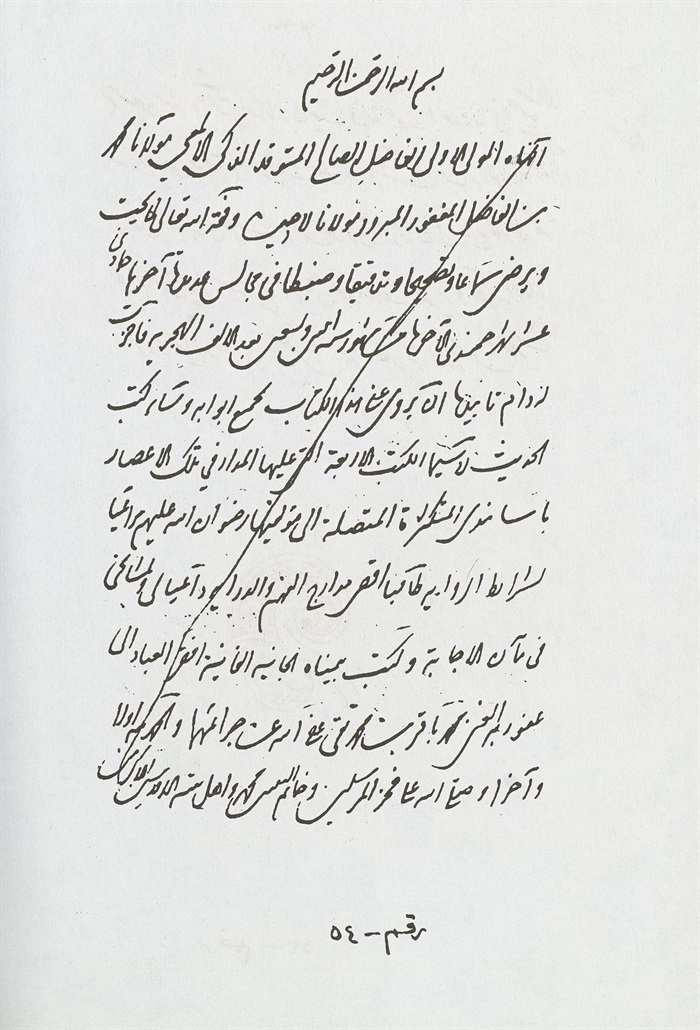 بسم الله الرحمن الرحيم
انهاه المولى الاولى الفاضل الصالح المتوقد الذكي الالمعي مولانا محمد
بن الفاضل المغفور المبرور مولانا لاجين وفقه الله تعالى لما يحب
ويرضى سماعا وتصحيحا وتدقيقا وضبطا في مجالس عديدة آخرها حادي
عشر شهر جمدى الآخرة من شهور سنة بعد الالف الهجرية فاجزت
له دام تاييده ان يروي عني هذا الكتاب بجميع ابوابه وسائر كتب
الحديث لا سيما الكتب الاربعة التي عليها المدار في تلك الاعصار
باسانيدي المتكثرة المتصلة الى مؤلفيها رضوان الله عليهم مراعيا
لشرايط الرواية طالبا اقصى مدارج الفهم والدراية داعيا لي ولمشايخي
في مآن الاجابة وكتب بيمناه الجانية الفانية افقر العباد الى
عفو ربه الغني محمد باقر بن محمد تقي عفى الله عن جرائمهما والحمد لله اولا
وآخرا وصلى الله على فخر المرسلين محمد واهل بيته الاقدسين
رقم - ٥٤